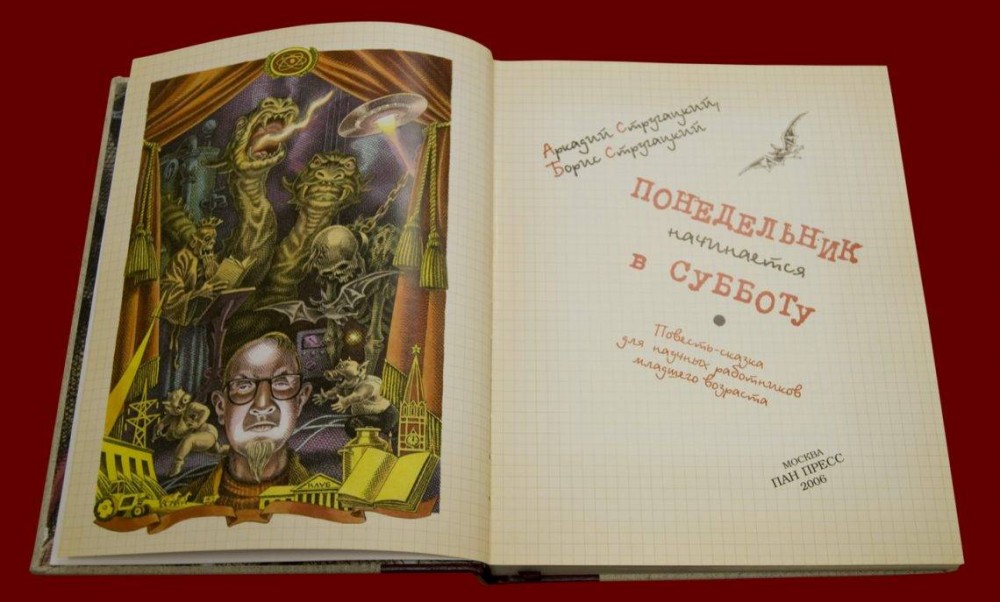 КЛУБ
Аркадий Стругацкий,
Борис Стругацкий
ПОНЕДЕЛЬНИК
начинается
в СУББОТУ
Повесть-сказка
для научных работников
младшего возраста
МОСКВА
ПАН ПРЕСС
2006